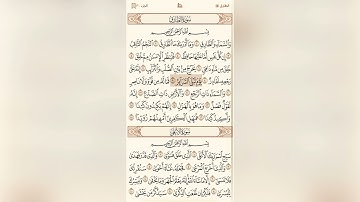 سُورَةُ الطَّارِقِ
بِسْمِ اللَّهِ الرَّحْمَٰنِ الرَّحِيمِ
وَالسَّمَاءِ وَالطَّارِقِ ١ وَمَا أَدْرَاكَ مَا الطَّارِقُ ٢ النَّجْمُ الثَّاقِبُ
٣ إِن كُلُّ نَفْسٍ لَّمَّا عَلَيْهَا حَافِظٌ ٤ فَلْيَنظُرِ الْإِنسَانُ مِمَّ خُلِقَ ٥
خُلِقَ مِن مَّاءٍ دَافِقٍ ٦ يَخْرُجُ مِن بَيْنِ الصُّلْبِ وَالتَّرَائِبِ ٧ إِنَّهُ عَلَىٰ
رَجْعِهِ لَقَادِرٌ ٨ يَوْمَ تُبْلَى السَّرَائِرُ ٩ فَمَا لَهُ مِن قُوَّةٍ وَلَا نَاصِرٍ
١٠ وَالسَّمَاءِ ذَاتِ الرَّجْعِ ١١ وَالْأَرْضِ ذَاتِ الصَّدْعِ ١٢ إِنَّهُ
لَقَوْلٌ فَصْلٌ ١٣ وَمَا هُوَ بِالْهَزْلِ ١٤ إِنَّهُمْ يَكِيدُونَ كَيْدًا ١٥
وَأَكِيدُ كَيْدًا ١٦ فَمَهِّلِ الْكَافِرِينَ أَمْهِلْهُمْ رُوَيْدًا ١٧
سُورَةُ الْأَعْلَىٰ
بِسْمِ اللَّهِ الرَّحْمَٰنِ الرَّحِيمِ
سَبِّحِ اسْمَ رَبِّكَ الْأَعْلَى ١ الَّذِي خَلَقَ فَسَوَّىٰ ٢ وَالَّذِي قَدَّرَ فَهَدَىٰ
٣ وَالَّذِي أَخْرَجَ الْمَرْعَىٰ ٤ فَجَعَلَهُ غُثَاءً أَحْوَىٰ ٥ سَنُقْرِئُكَ
فَلَا تَنسَىٰ ٦ إِلَّا مَا شَاءَ اللَّهُ إِنَّهُ يَعْلَمُ الْجَهْرَ وَمَا يَخْفَىٰ ٧ وَنُيَسِّرُكَ
لِلْيُسْرَىٰ ٨ فَذَكِّرْ إِن نَّفَعَتِ الذِّكْرَىٰ ٩ سَيَذَّكَّرُ مَن يَخْشَىٰ